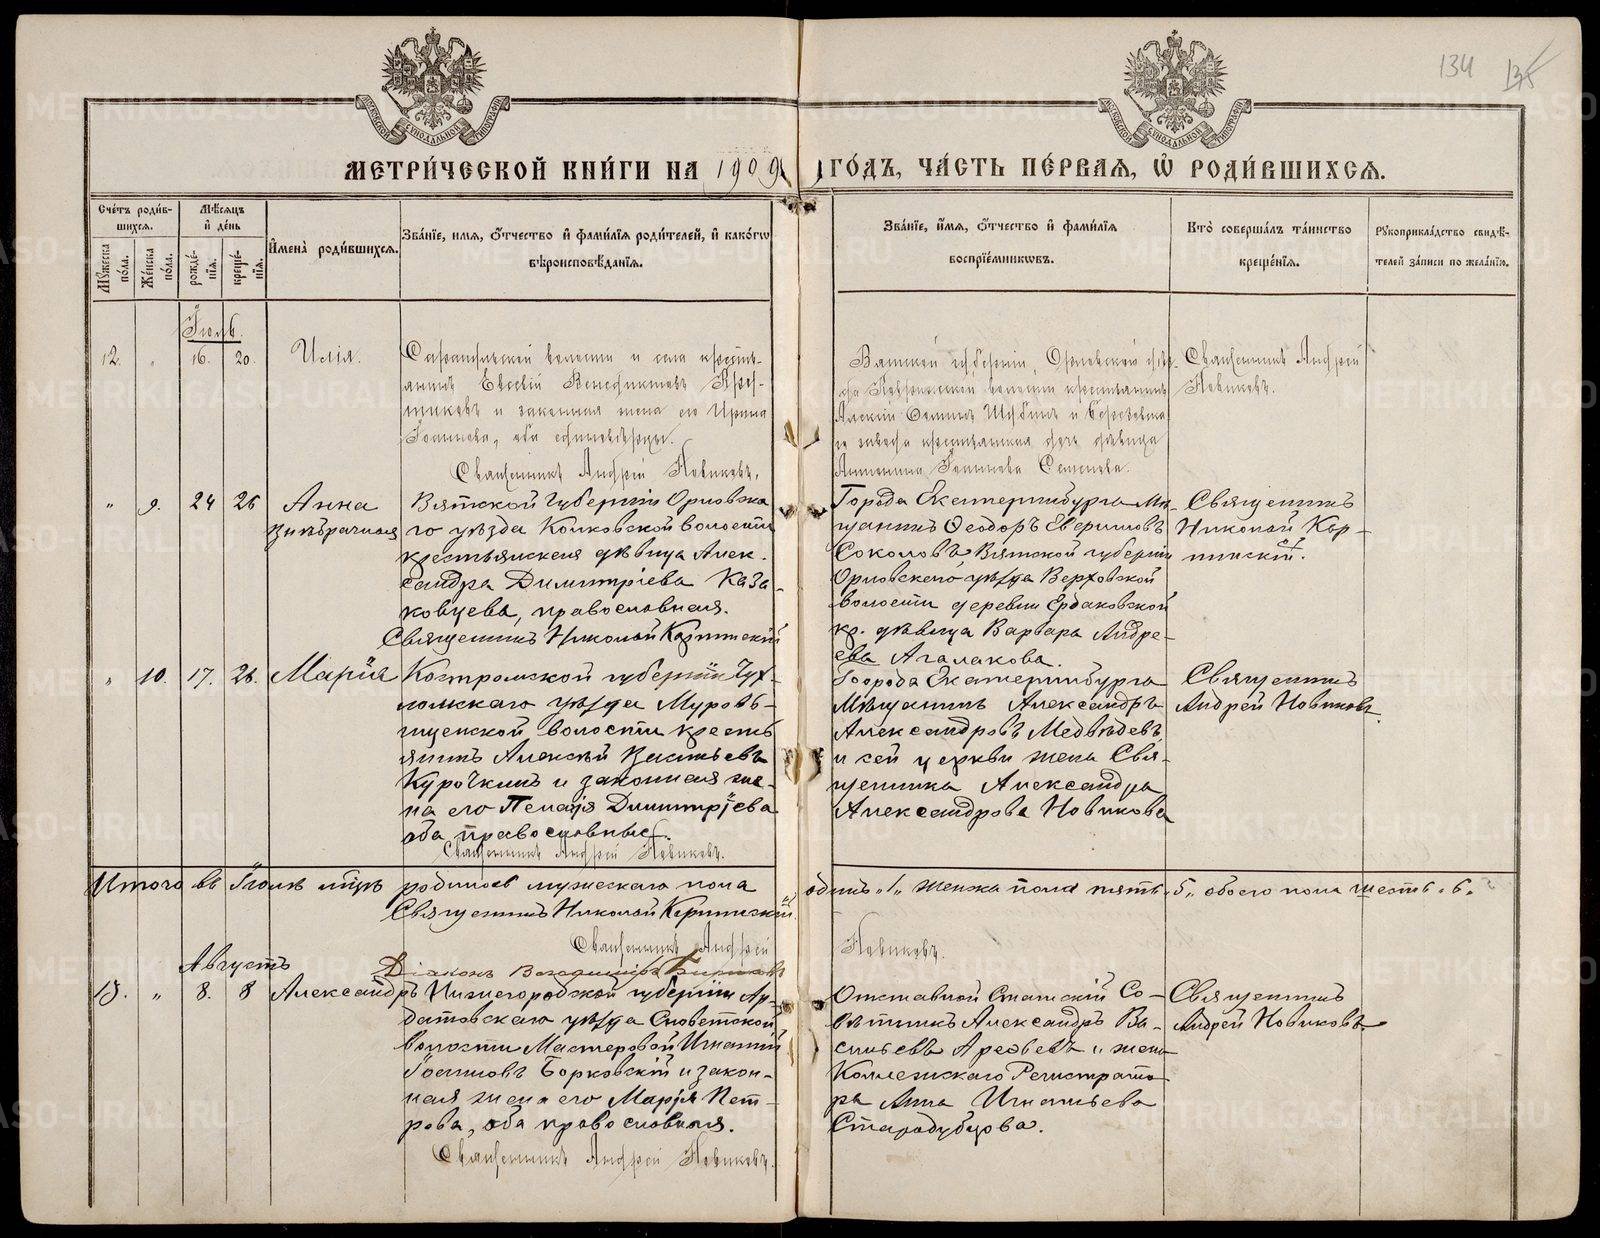 134
МЕТРИ́ЧЕСКОЙ КНИ́ГИ НА 1909 ГО́ДЪ, ЧА́СТЬ ПЕ́РВАЯ, Ѡ҆ РОДИ́ВШИХСЯ.
Сче́тъ роди́в-
шихся.
Мѣ́сяцъ
и҆ де́нь
Мꙋ́жеска
по́ла.
Же́нска
по́ла.
рожде́-
нїя.
креще́-
нїя.
И҆мена̀ роди́вшихся.
Зва́нїе, имя, ѻ҆́тчество и҆ фами́лїя роди́телей, и҆ како́гѡ
вѣроисповѣ́данїя.
Зва́нїе, и҆́мя, ѻ҆́тчество и҆ фами́лїя
воспрїе́мникѡвъ.
Кто̀ соверша́лъ та́инство
креще́нїя.
Рꙋкоприкла́дство свидѣ́-
телей за́писи по жела́нїю.
Іюль.
12. " 16. 20. Илія.
волости и села крестья-
нинъ Евсевій Венедиктовъ
и законная жена его Ирина
Іоаннова, оба единовѣрцы.
Священникъ Андрей Новиковъ.
Вятской губерніи, Орловскаго уѣз-
да волости крестьянинъ
Алексій
завода крестьянская дочь дѣвица
Антонина Іоаннова Семенова.
Священникъ Андрей
Новиковъ.
" 9. 24 26 Анна
Внѣбрачная
Вятской губерніи Орловска
го уѣзда волости
крестьянская дѣвица Алек-
сандра Димитріева Каза-
ковцева, православная.
Священникъ Николай
Города Екатеринбурга Мѣ-
щанинъ Ѳеодоръ Евфимовъ
Соколовъ Вятской губерніи
Орловскаго уѣзда Верховской
волости деревни Ердаковской
кр. дѣвица Варвара Андре-
ева Агалакова.
Священникъ
Николай
" 10. 17. 26. Марія
Костромской губерніи Чух-
ломскаго уѣзда
волости кресть
янинъ Алексій Васильевъ
Курочкинъ и законная же-
на его Пелагія Димитріева
оба православные.
Священникъ Андрей Новиковъ.
Города Екатеринбурга
Мѣщанинъ Александръ
Александровъ Медвѣдевъ
и сей церкви жена Свя-
щенника Александра
Александрова Новикова
Священникъ
Андрей Новиковъ.
Итого въ Іюлѣ м-цѣ родилось мужескаго пола одинъ "1" женска пола пять "5" обоего пола шесть "6"
Священникъ Николай
Священникъ Андрей Новиковъ.
Діаконъ
Августъ
13. " 8. 8 Александръ
Нижегородской губерніи Ар-
датовскаго уѣзда
волости Мастеровой Игнатій
Іоанновъ Борковскій и закон-
ная жена его Марія Пет-
рова, оба православныя.
Священникъ Андрей Новиковъ.
Отставной Статскій Со-
вѣтникъ Александръ Ва-
сильевъ Арефьевъ и жена
Коллежскаго Регистрато-
ра Анна Игнатьева
Стародубцова.
Священникъ
Андрей Новиковъ
METRIKI.GASO-URAL.RU